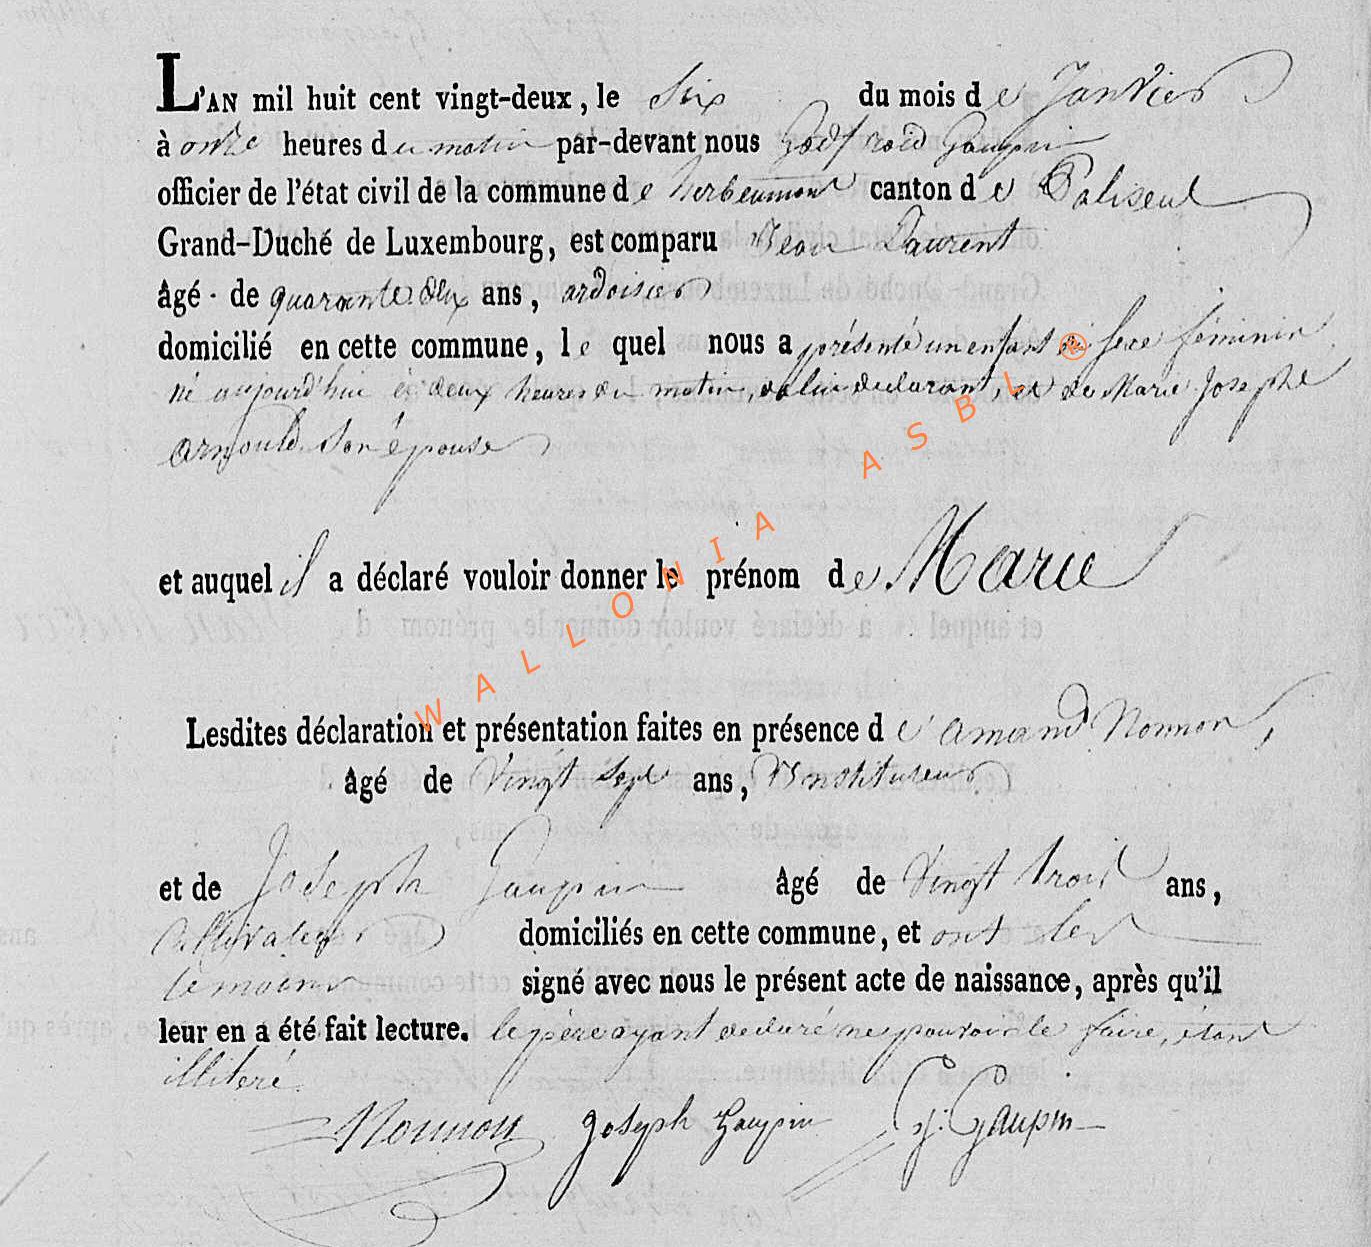 L'AN mil huit cent vingt-deux, le Six du mois de Janvier
à onze heures du matin par-devant nous Godfroid Gaupin
officier de l'état civil de la commune de herbeumont canton de Paliseul
Grand-Duché de Luxembourg, est comparu Jean Laurent
âgé de quarante deux ans, ardoisier
domicilié en cette commune, le quel nous a présenté un enfant du sexe féminin
né aujourd'hui à deux heures du matin, de lui declarant, et de Marie Josephe
arnould Son épouse
et auquel il a déclaré vouloir donner le prénom de Marie
Lesdites déclaration et présentation faites en présence de amand Nonnon,
âgé de Vingt Sept ans, Instituteur
et de Joseph Gaupin âgé de Vingt trois ans,
Cultivateur domiciliés en cette commune, et ont les
temoins signé avec nous le présent acte de naissance, après qu'il
leur en a été fait lecture. le père ayant declaré ne pouvoir le faire, étant
illiteré
Nonnon Joseph Gaupin G: Gaupin
WALLONIA ASBL ®